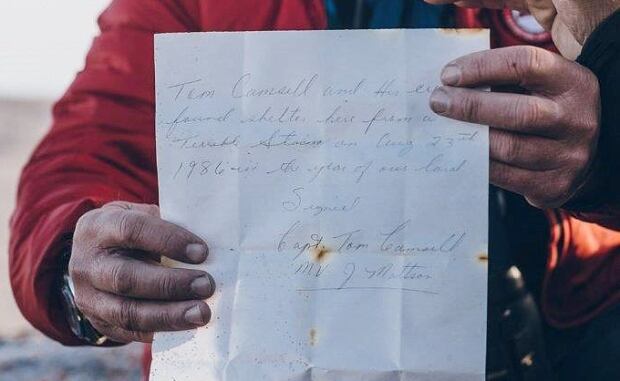 Tom Camsell and His
found shelter here from a
Terrible Storm on Aug 23th
1986 in the year of our lord
Signed
Capt. Tom Camsell
MV J Mattson